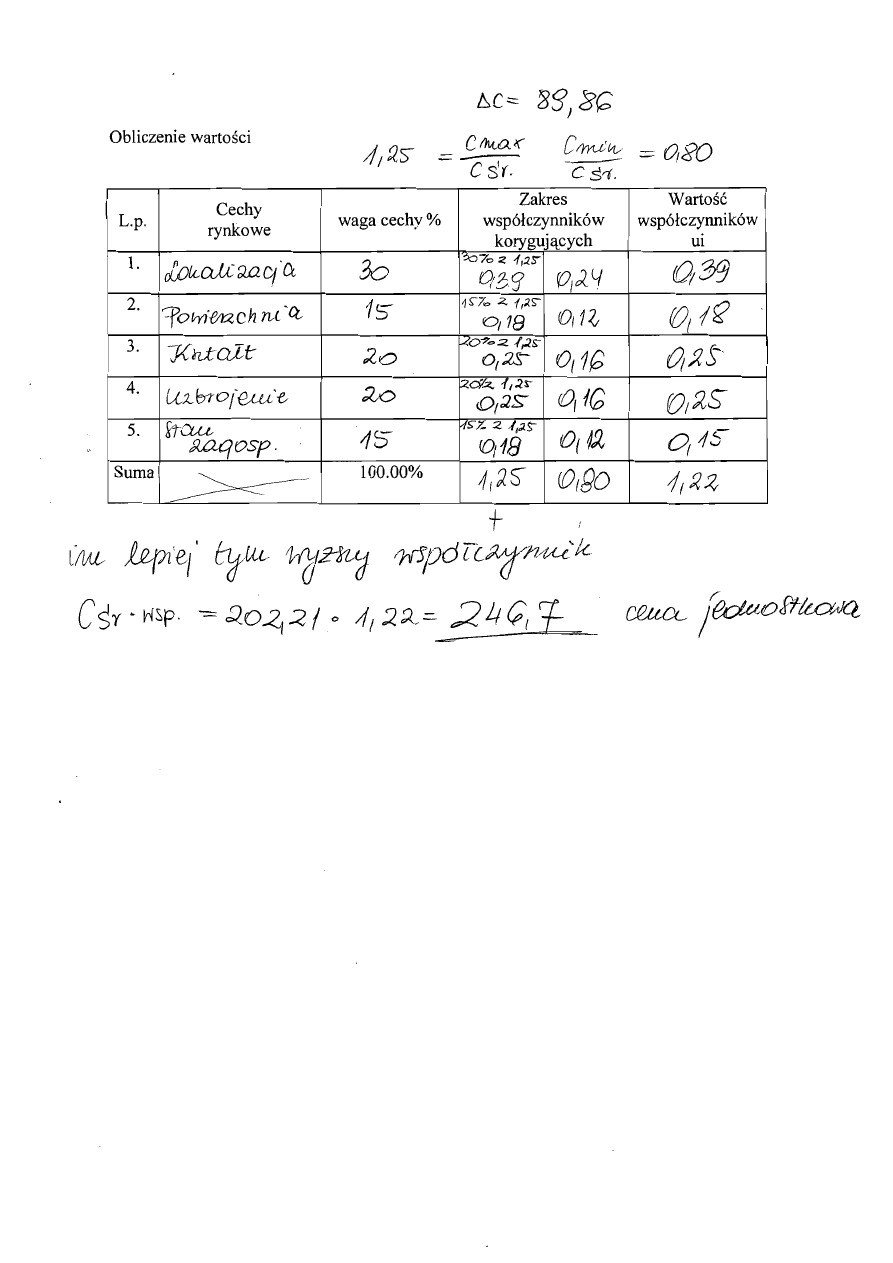 ΔC = 89,86
Obliczenie wartości
1,25 = Cmax / C śr. Cmin / C śr. = 0,80
L.p. Cechy rynkowe waga cechy % Zakres współczynników korygujących Wartość współczynników ui
1. Lokalizacja 30 30% z 1,25 0,39 0,24 0,39
2. Powierzchnia 15 15% z 1,25 0,18 0,12 0,18
3. Kształt 20 20% z 1,25 0,25 0,16 0,25
4. Uzbrojenie 20 20% z 1,25 0,25 0,16 0,25
5. Stan zagosp. 15 15% z 1,25 0,18 0,12 0,15
Suma 100.00% 1,25 0,80 1,22
+
im lepiej tym wyższy współczynnik
C śr · wsp. = 202,21 · 1,22 = 246,7 cena jednostkowa